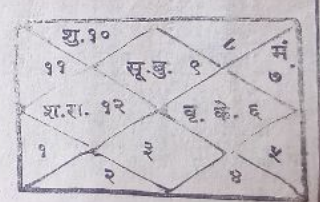 शु.१०
८
११
सू.बु. ९
७ मं.
श.रा. १२
बृ. के. ६
१
३
५
२
४